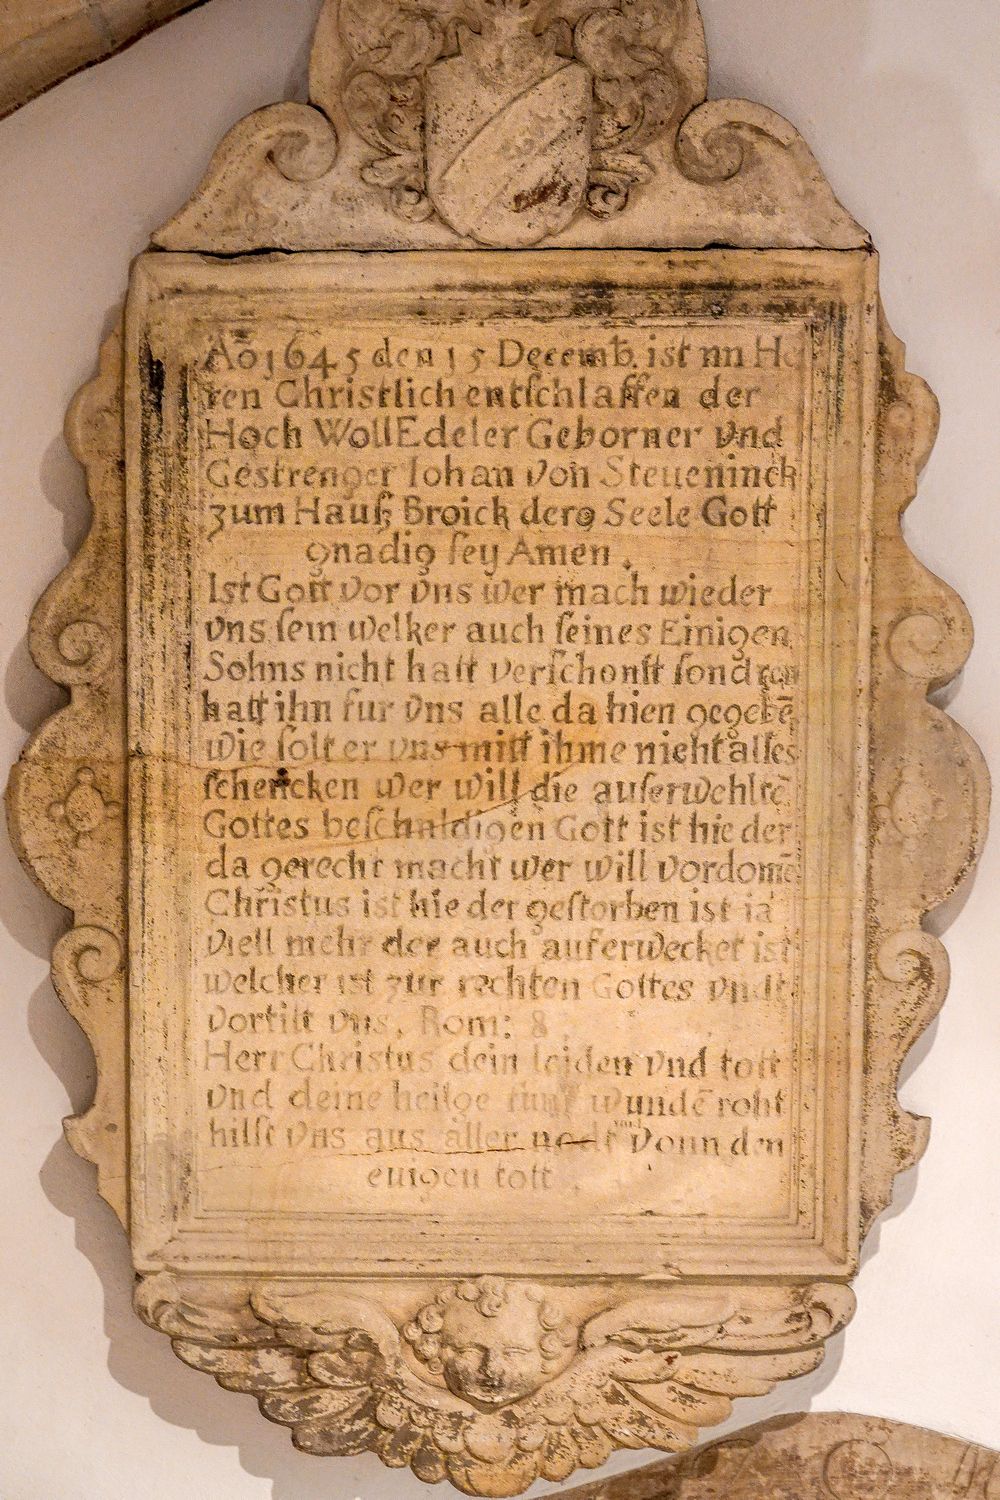 Aō 1645 den 15 Decemb. ist nn He
ren Christlich entschlaffen der
Hoch WollEdeler Geborner vnd
Gestrenger Iohan von Steueninck
zum Hauß Broick dero Seele Gott
gnadig sey Amen.
Ist Gott vor vns wer mach wieder
vns sein welker auch seines Einigen
Sohns nicht hatt verschonst sondren
hatt ihn fur vns alle da hien gegebē
wie solt er vns mitt ihme nicht alles
schencken wer will die auserwehltē
Gottes beschuldigen Gott ist hie der
da gerecht macht wer will vordomē
Christus ist hie der gestorben ist ia
viell mehr der auch auferwecket ist
welcher ist zur rechten Gottes vndt
vortilt vns. Rom: 8.
Herr Christus dein leiden vnd tott
vnd deine heilge funf wundē roht
hilst vns aus aller nodt vnd vonn den
euigen tott